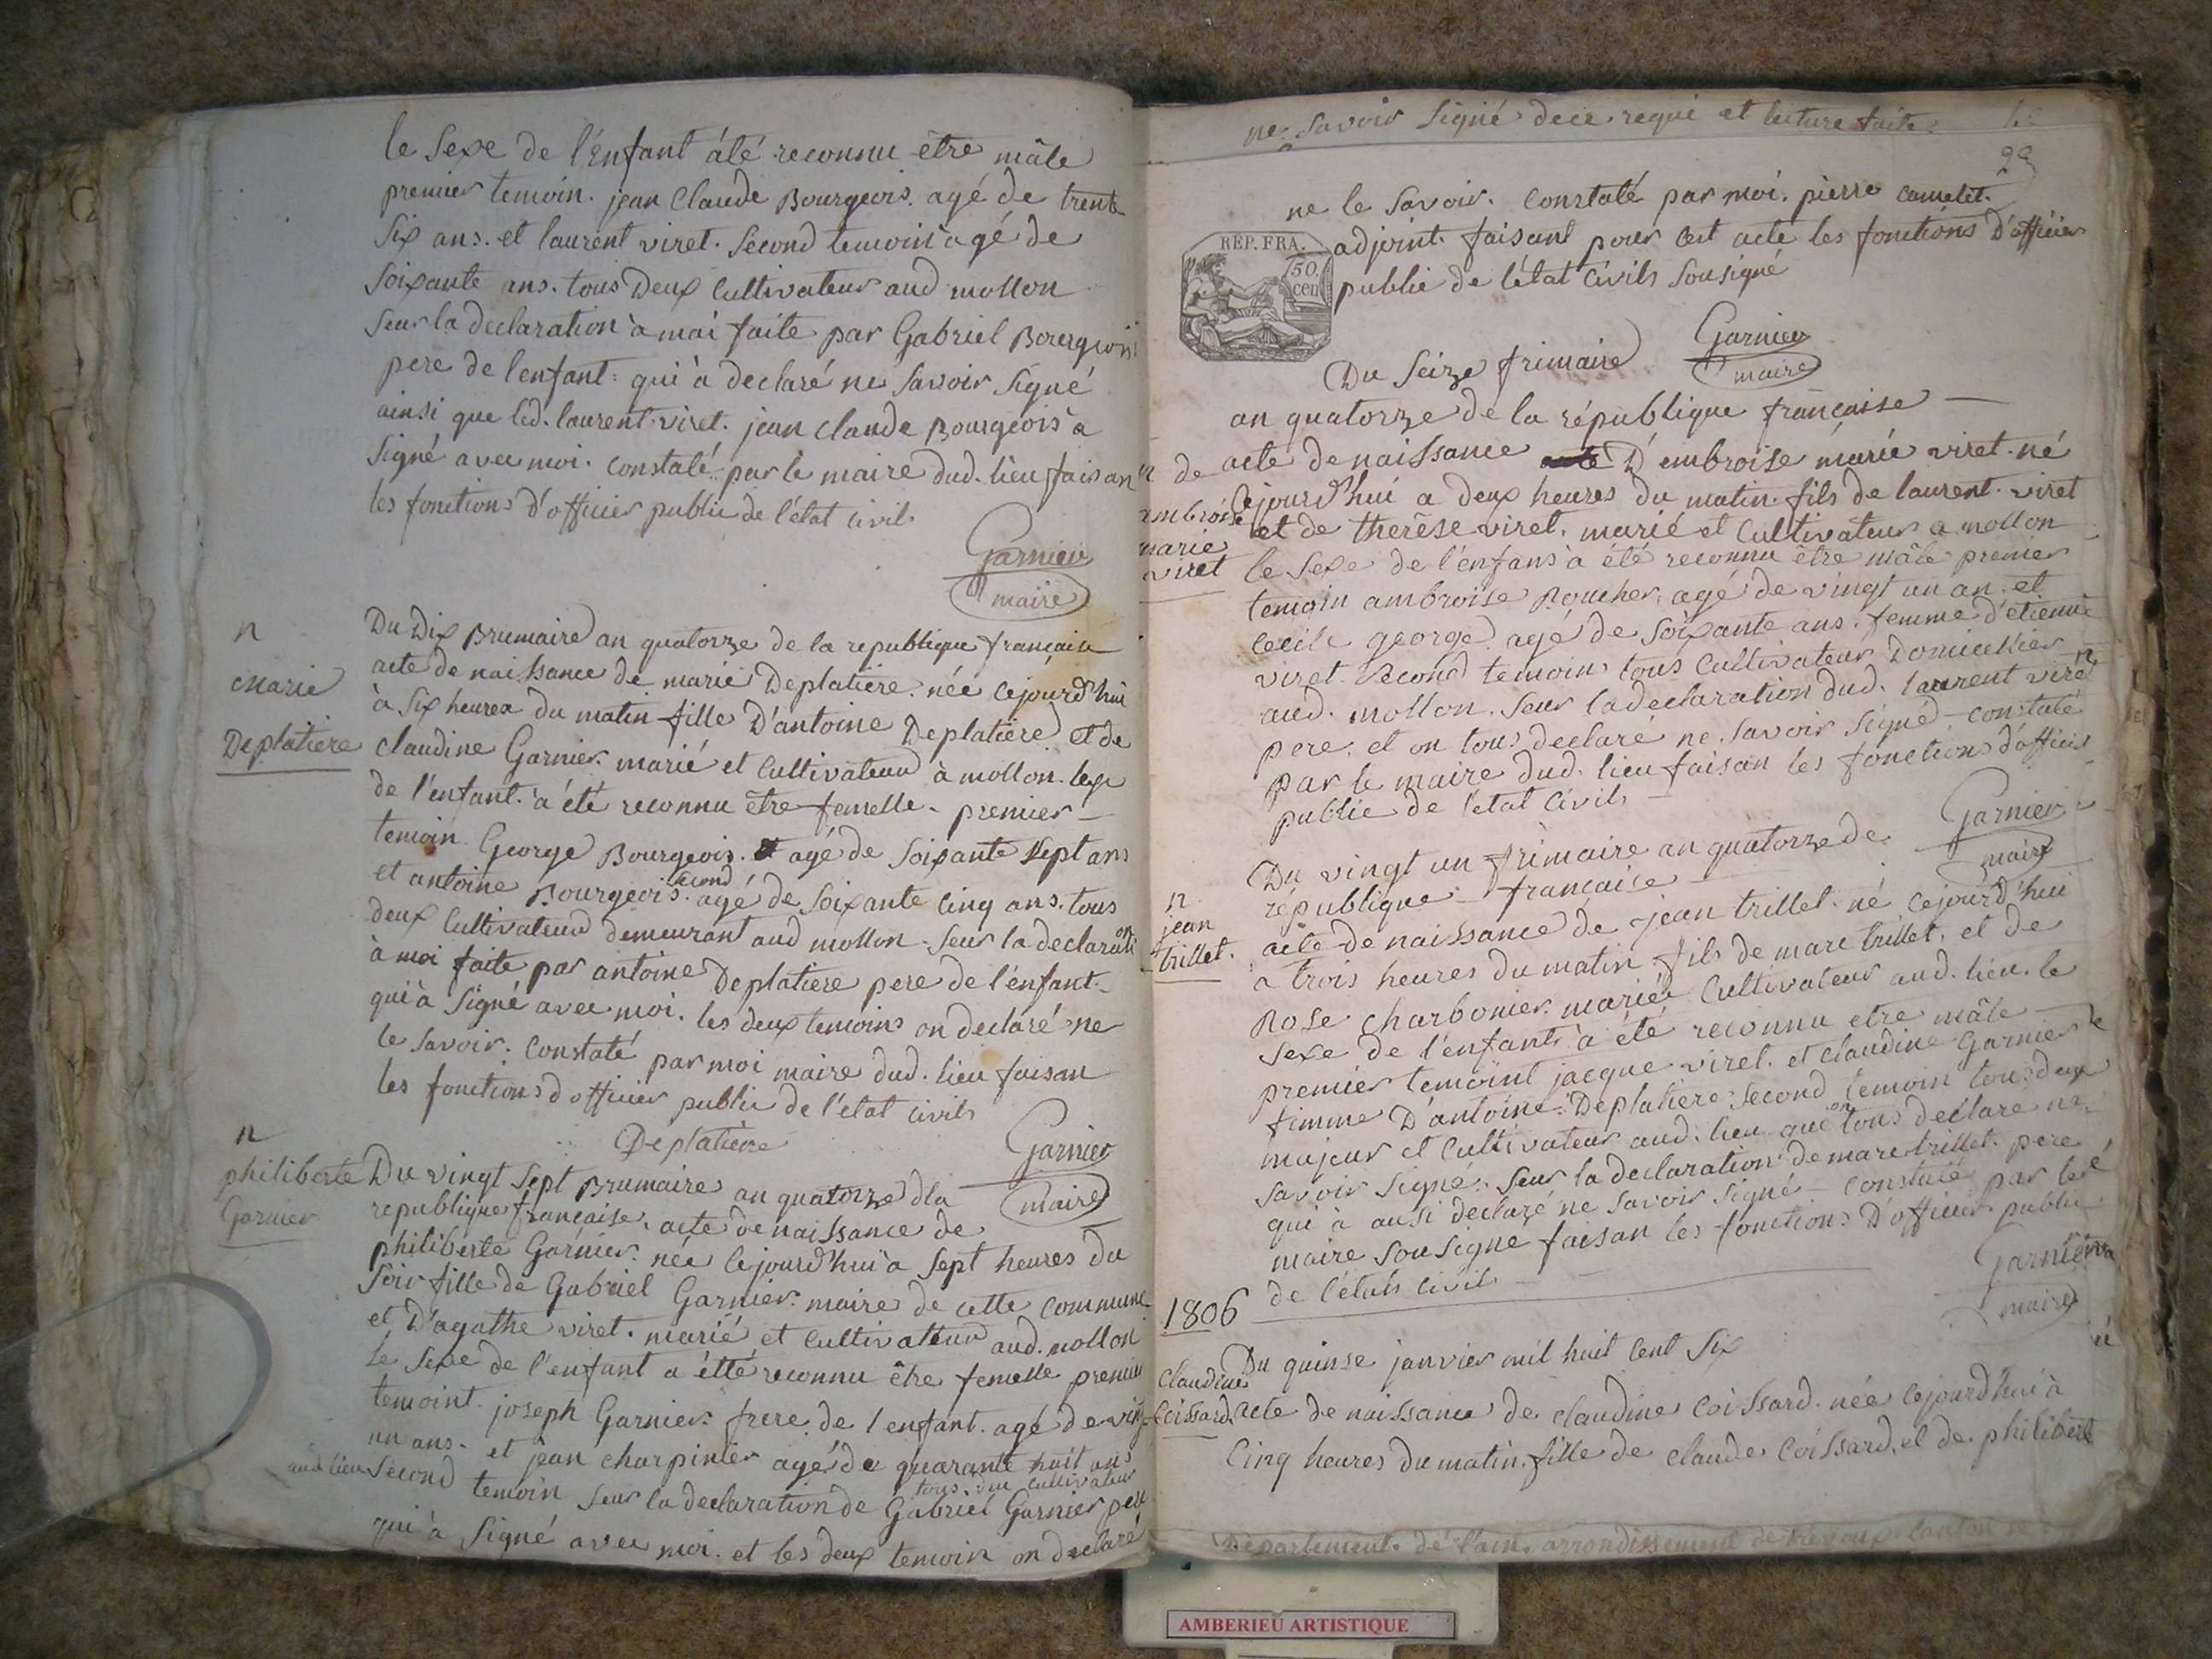 le Sexe de l'Enfant à été reconnu être mâle
premier temoin. jean Claude Bourgeois. agé de trente
Six ans. et laurent viret. Second temoin agé de
Soixante ans. tous Deux Cultivateur aud mollon
Seur la declaration à moi faite par Gabriel Bourgeois
pere de l'enfant: qui à declaré ne Savoir Signé
ainsi que led. laurent viret. jean claude Bourgeois à
Signé avec moi. Constaté par le maire dud. lieu faisan
les fonctions d'officier public de l'état civil.
Garnier
maire
n
marie
Deplatiere
Du Dix Brumaire an quatorze de la republique française
acte de naissance de marie Deplatiere. née cejourd'hui
à Six heures du matin fille D'antoine Deplatiere et de
claudine Garnier. marié et Cultivateur à mollon. lesexe
de l'enfant. à été reconnu être femelle. premier
temoin George Bourgeois. agé de Soixante Sept ans
et antoine Bourgeois. second agé de Soixante Cinq ans. tous
deux Cultivateur demeurant aud mollon. Seur la declaration
à moi faite par antoine Deplatiere pere de l'enfant.
qui à Signé avec moi. les deux temoins on declaré ne
le Savoir. Constaté par moi maire dud. lieu faisan
les fonctions d officier public de l'etat civil
Deplatiere
Garnier
maire
n
philiberte
Garnier
Du vingt Sept Brumaire an quatorze dla
republique française. acte de naissance de
philiberte Garnier. née cejourd'hui à Sept heures du
Soir fille de Gabriel Garnier. maire de cette Commune
et D'agathe viret. marié et Cultivateur aud. mollon
le Sexe de l'enfant a étté reconnu être femelle premier
temoint. joseph Garnier. frere de l enfant. agé de vingt
un ans. et jean charpinier agé de quarante huit ans
aud lieu Second temoin tous deux Cultivateur Seur la declaration de Gabriel Garnier pere
qui à Signé avec moi. et les deux temoin on declaré
ne Savoir Signé dece requi et lecture faite
ne le Savoir. Constaté par moi. pierre camelet.
REP. FRA.
50.
cen
adjoint. faisant pour Cest acte les fonctions D'officier
public de l'état Civils Sousigné
Garnier
maire
Du Seize frimaire
an quatorze de la république française
acte de naissance D'embroise marie viret. né
n de
ambroise
marie
viret
cejourd'hui a deux heures du matin. fils de laurent. viret
et de therèse viret. marié et Cultivateur a mollon
le Sexe de l'énfans à été reconnu être mâle premier
temoin ambroise Boucher. agé de vingt un an. et
Cecile george agé de Soixante ans. femme d'étienne
viret. Second temoin tous Cultivateur Domicilier
aud. mollon. Seur la declaration dud. laurent viret
pere. et on tous declaré ne. Savoir Signé - constaté
par le maire dud. lieu faisan les fonctions d'officier
public de l'état Civils
Garnier
maire
n
jean
trillet.
Du vingt un frimaire an quatorze de
république française
acte de naissance de jean trillet. né cejourd'hui
a trois heures du matin. fils de marc trillet. et de
Rose charbonier. marié Cultivateur aud. lieu. le
Sexe de l'enfants à été reconnu etre mâle
premier temoint jacque viret. et claudine Garnier
femme D'antoine Deplatiere Second temoin tous deux
majeur et Cultivateur aud. lieu qui on tous declare ne
Savoir Signé. Seur la declaration de marc trillet. pere
qui à ausi declaré ne Savoir Signé - Constaté par le
maire Sousigné faisan les fonctions D'officier public
de l'états Civil
Garnier
maire
1806
Claudine
Coissard.
Du quinse janvier mil huit Cent Six
acte de naissance de claudine Coissard. née cejourd'hui à
Cinq heures du matin. fille de claude Coissard. et de. philiberte
Departement. de l'ain. arrondissement de trevoux. Canton
AMBERIEU ARTISTIQUE